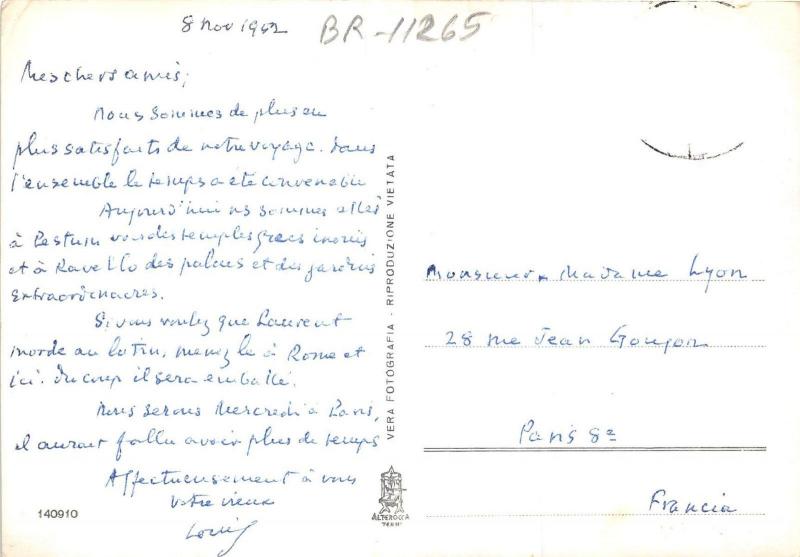 8 Nov 1962
BR-11265
Mes chers amis,
Nous sommes de plus en
plus satisfaits de notre voyage. Dans
l'ensemble le temps a été convenable
Aujourd'hui ns sommes allés,
à Pestum voir des temples grecs inouis
et à Ravello des palais et des jardins
extraordinaires.
Si vous voulez que Laurent
morde au latin, menez le à Rome et
ici. Du coup il sera emballé.
Nous serons Mercredi à Paris,
il aurait fallu avoir plus de temps
Affectueusement à vous
Votre vieux
Louis
140910
VERA FOTOGRAFIA - RIPRODUZIONE VIETATA
ALTEROCCA
TERNI
Monsieur Madame Lyon
28 rue Jean Goujon
Paris 8e
Francia